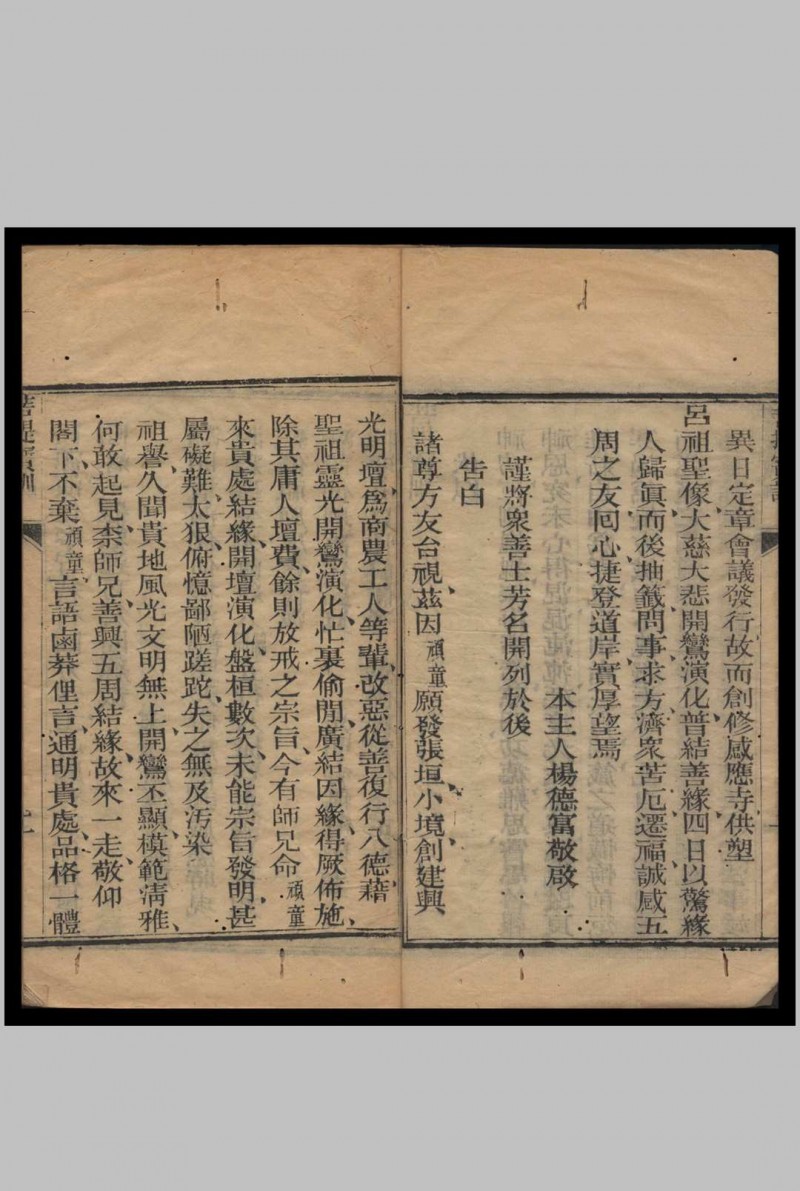 異日定章會議發行故而創修感應寺供塑
呂祖聖像大慈大悲開鸞演化普結善緣四日以驚緣
人歸眞而後抽籤問事求方濟衆苦厄遷福誠感五
周之友囘心捷登道岸實厚望焉
本主人楊德富敬啟
謹將衆善士芳名開列於後
告白
諸尊方友台視茲因頑童願發張垣小境創建興
光明壇爲商農工人等輩改惡從善復行八德藉
聖祖靈光開鸞演化忙裏偷閒廣結因緣得厥佈施
除其庸人壇費餘則放戒之宗旨今有師兄命頑童
來貴處結緣開壇演化盤桓數次未能宗旨發明甚
屬礙難太狠俯憶鄙陋蹉跎失之無及汚染
祖譽久聞貴地風光文明無上開鸞丕顯模範淸雅
何敢起見柰師兄善興五周結緣故來一走敬仰
閣下不棄頑童言語鹵莽俚言通明貴處品格一體
菩提寶訓